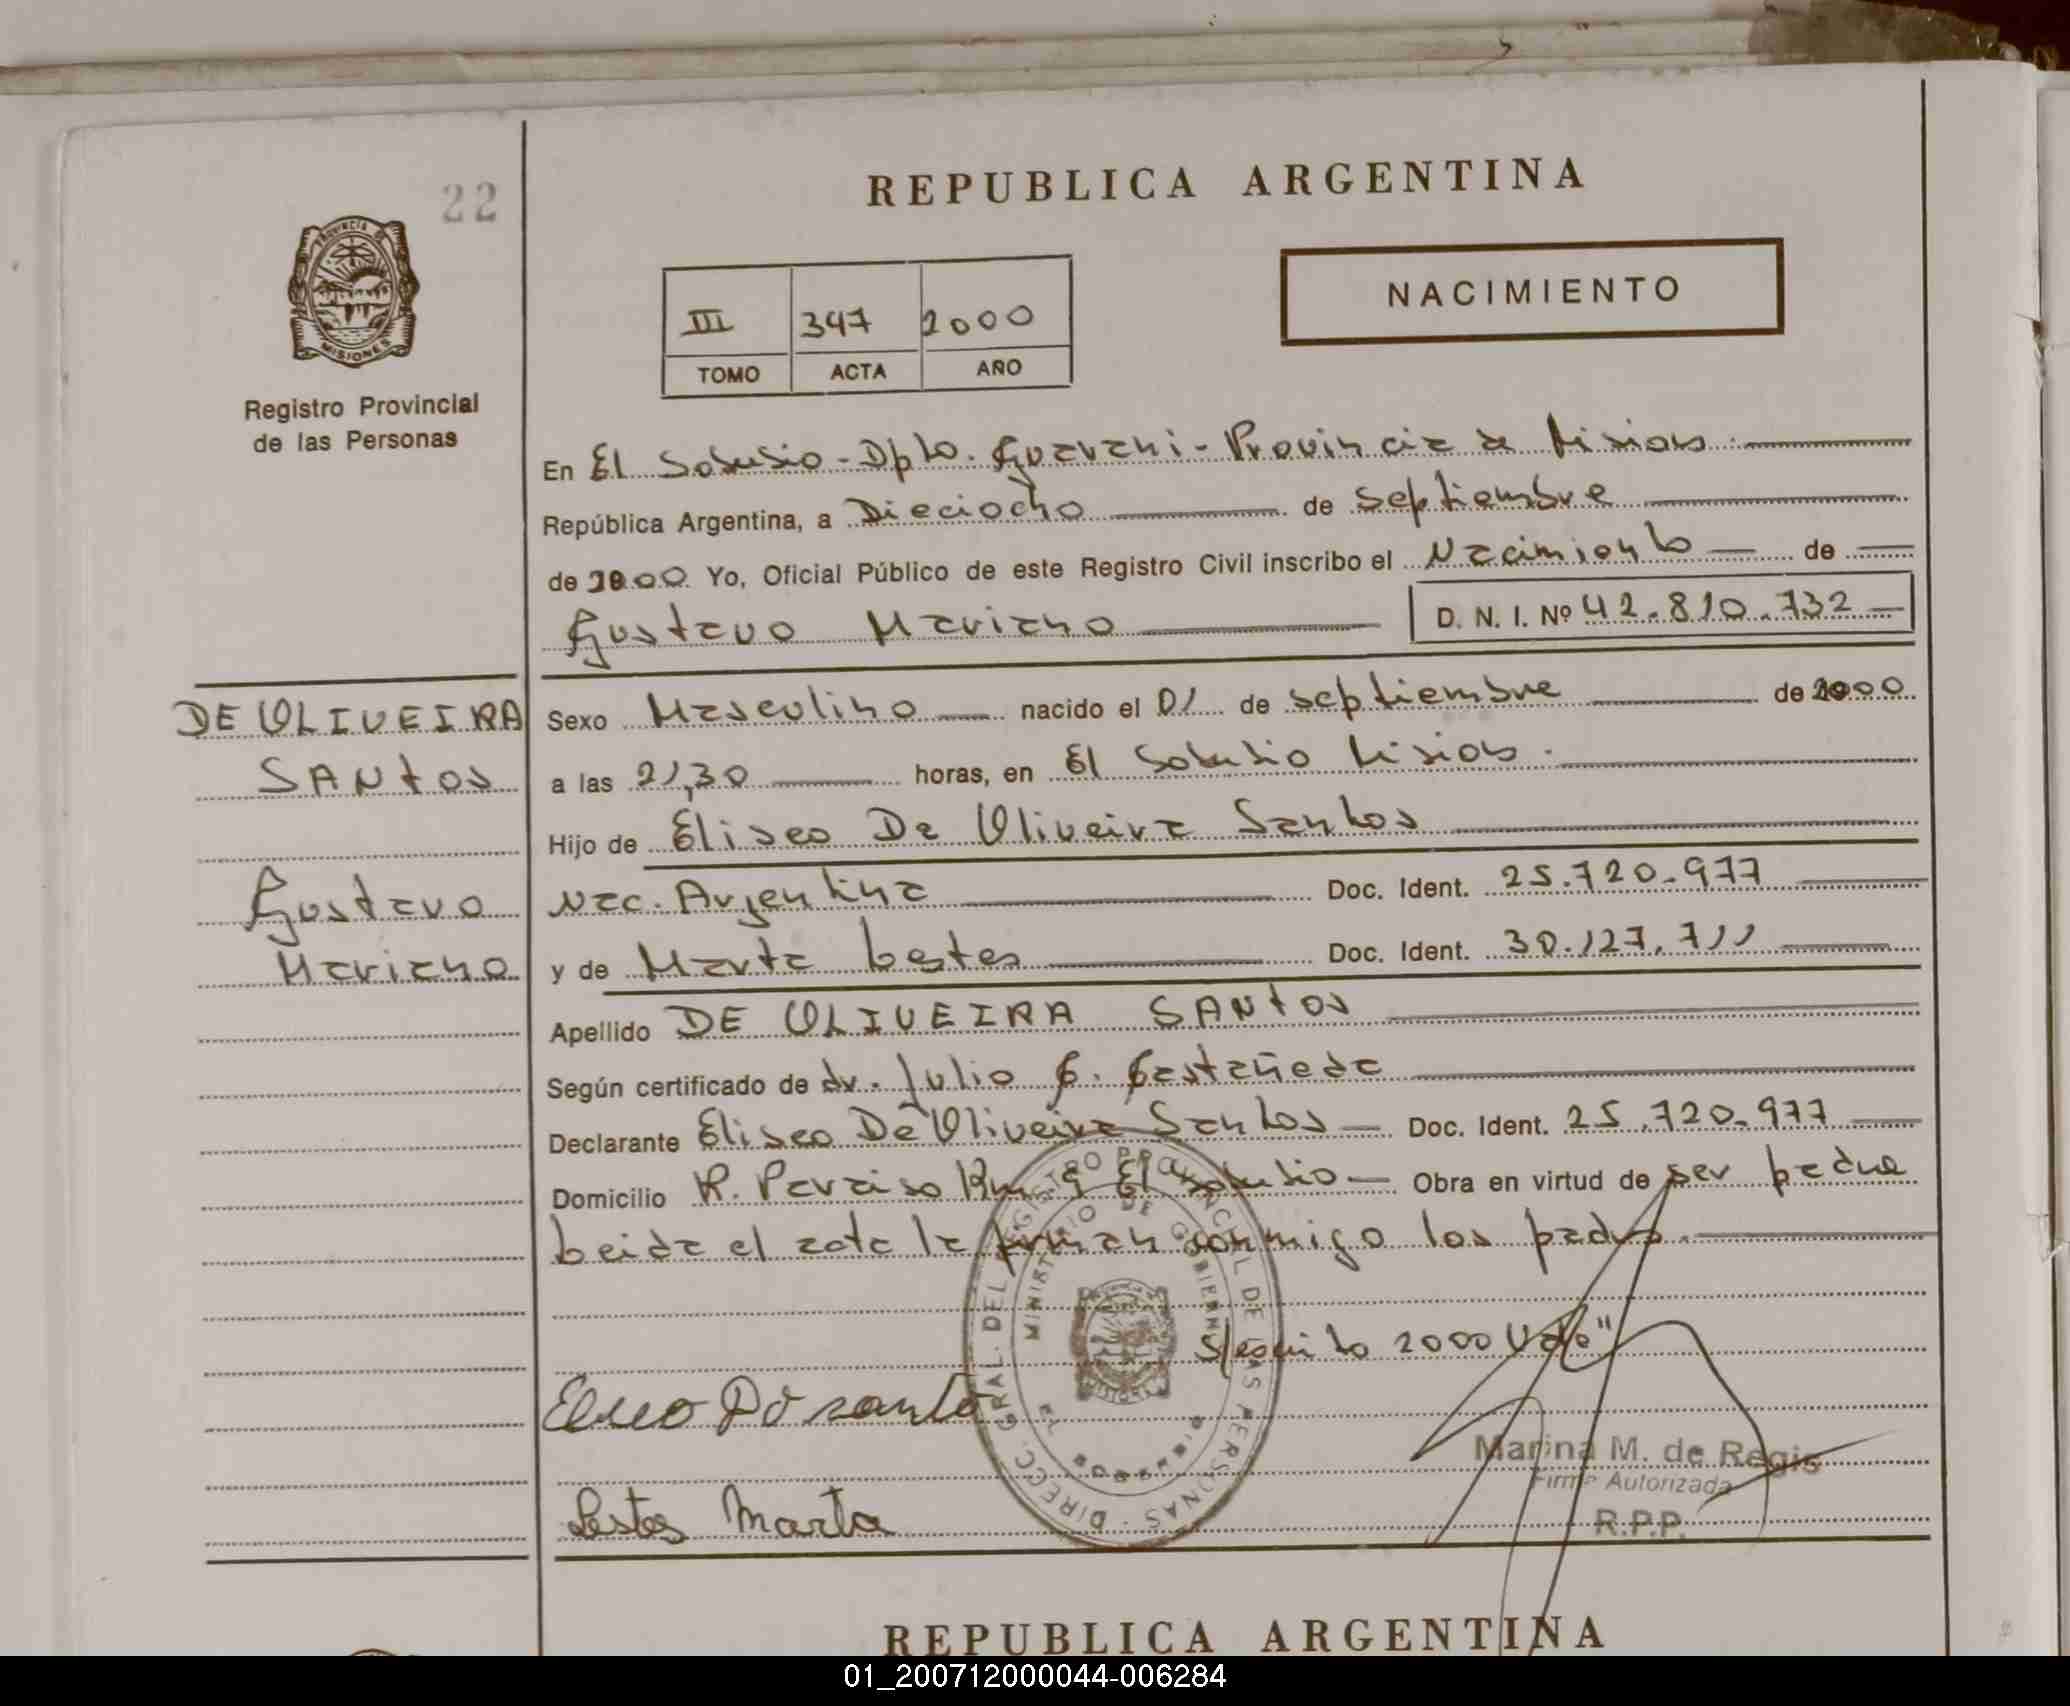 22
PROVINCIA DE
MISIONES
Registro Provincial
de las Personas
REPUBLICA ARGENTINA
III 347 2000
TOMO ACTA AÑO
NACIMIENTO
En El Soberbio - Dpto. Guarani - Provincia de Misiones.
República Argentina, a Dieciocho de septiembre
de 2000 Yo, Oficial Público de este Registro Civil inscribo el Nacimiento de
Gustavo Mariano D. N. I. Nº 42.810.732
DE OLIVEIRA
SANTOS
Gustavo
Mariano
Sexo Masculino nacido el 01 de septiembre de 2000
a las 21,30 horas, en El Soberbio Misiones.
Hijo de Eliseo De Oliveira Santos
Nac. Argentina Doc. Ident. 25.720.977
y de Marta Lestes Doc. Ident. 30.127.711
Apellido DE OLIVEIRA SANTOS
Según certificado de dr. Julio C. Castañeda
Declarante Eliseo De Oliveira Santos Doc. Ident. 25.720.977
Domicilio R. Paraiso Km 9 El Soberbio Obra en virtud de ser padre
Leida el acta la firman conmigo los padres.
S/escrito 2000 Vale"
DIRECC. GRAL. DEL REGISTRO PROVINCIAL DE LAS PERSONAS
MINISTERIO DE GOBIERNO
MISIONES
EL SOBERBIO
Santo
Lestes Marta
Marina M. de Regis
Firma Autorizada
R.P.P.
REPUBLICA ARGENTINA
01_200712000044-006284